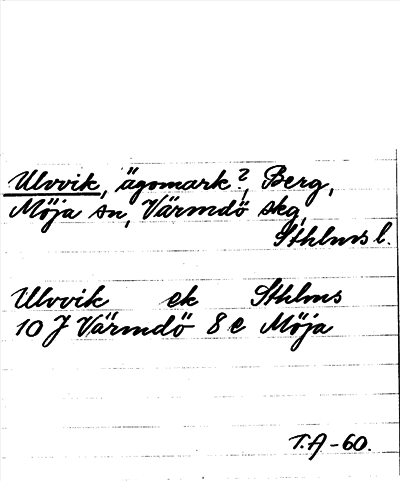 Ulvvik, ägomark?, Berg,
Möja sn, Värmdö skg,
Sthlms l.
Ulvvik ek Sthlms
10 J Värmdö 8 e Möja
T.A-60.